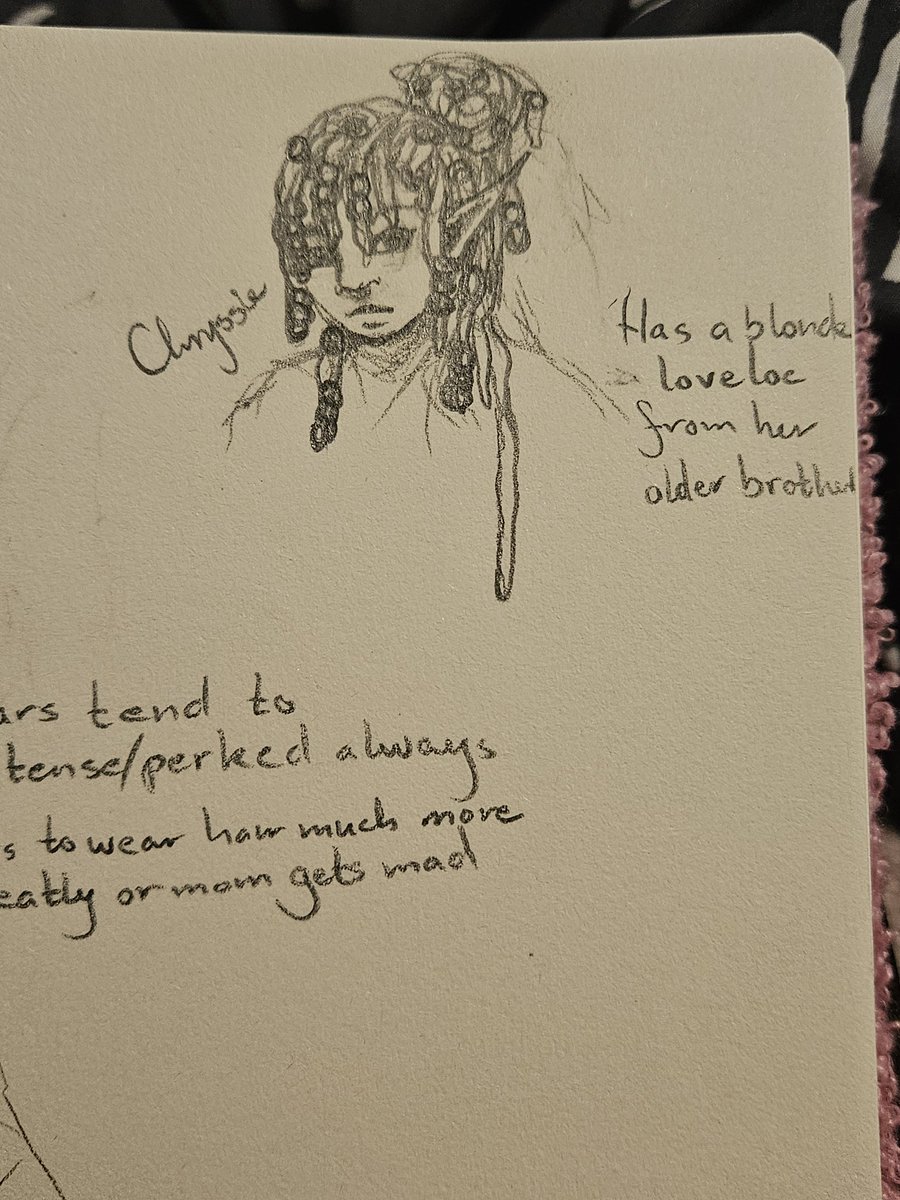 Chryssie
Has a blonde
loveloc
from her
older brother
ars tend to
tense/perked always
s to wear hair much more
eatly or mom gets mad